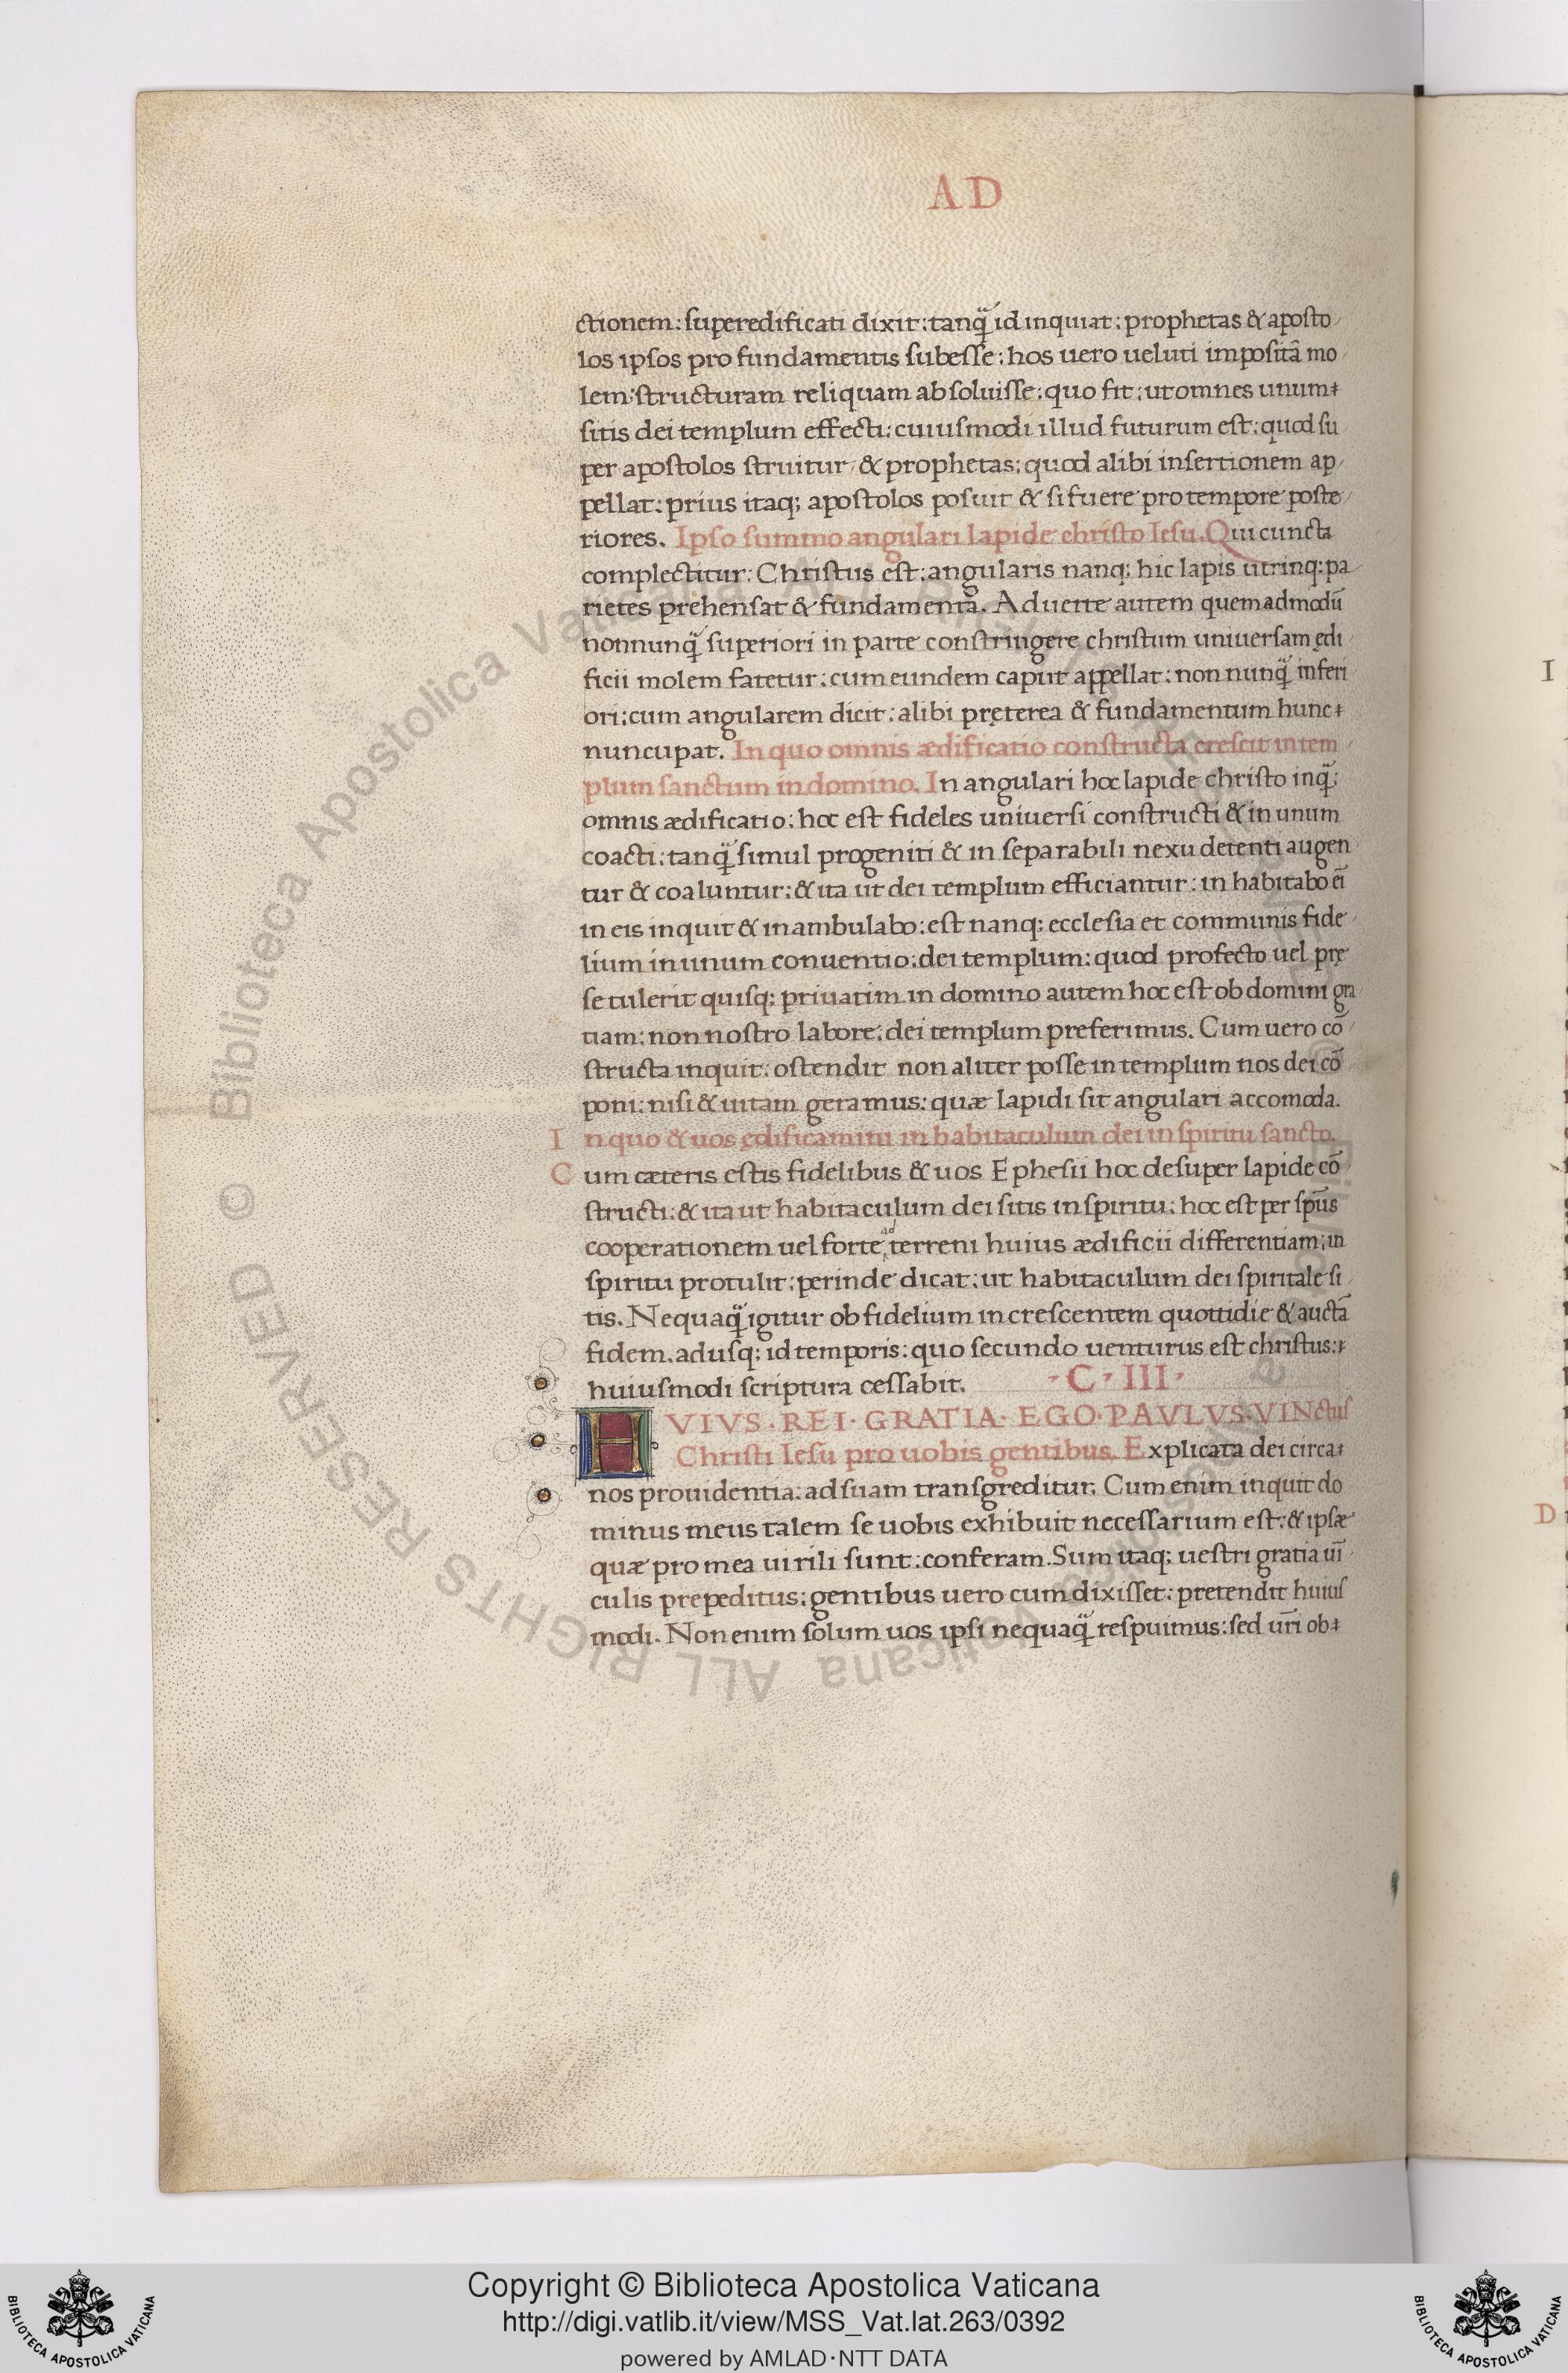 AD
ctionem: superedificati dixit: tanq̈ id inquiat: prophetas & aposto
los ipsos pro fundamentis subesse: hos uero ueluti impositā mo
lem: structuram reliquam absoluisse: quo fit: ut omnes unum
sitis dei templum effecti: cuiusmodi illud futurum est: quod su
per apostolos struitur, & prophetas: quod alibi insertionem ap
pellat: prius itaq; apostolos posuit & si fuere pro tempore poste
riores. Ipso summo angulari lapide christo Iesu. Qui cuncta
complectitur: Christus est: angularis nanq; hic lapis utrinq; pa
rietes prehensat & fundamenta. Aduerte autem quemadmodū
nonnunq̈ superiori in parte constringere christum uniuersam ędi
ficii molem fatetur: cum eundem caput appellat: non nunq̈ inferi
ori: cum angularem dicit: alibi pręterea & fundamentum hunc
nuncupat. In quo omnis ædificatio constructa crescit in tem
plum sanctum in domino. In angulari hoc lapide christo inq̈:
omnis ædificatio: hoc est fideles uniuersi constructi & in unum
coacti: tanq̈ simul progeniti & in separabili nexu detenti augen
tur & coaluntur: & ita ut dei templum efficiantur: in habitabo ei
in eis inquit & inambulabo: est nanq; ecclesia et communis fide
lium in unum conuentio: dei templum: quod profecto uel prę
se tulerit quisq; priuatim in domino autem hoc est ob domini gra
tiam: non nostro labore: dei templum preferimus. Cum uero cō
structa inquit: ostendit non aliter posse in templum nos dei cō
poni: nisi & uitam geramus: quæ lapidi sit angulari accomoda.
In quo & uos ędificamini in habitaculum dei in spiritu sancto.
Cum cæteris estis fidelibus & uos Ephesii hoc desuper lapide cō
structi: & ita ut habitaculum dei sitis in spiritu: hoc est per spūs
cooperationem uel forte ad terreni huius ædificii differentiam: in
spiritu protulit: perinde dicat: ut habitaculum dei spiritale si
tis. Nequaq̈ igitur ob fidelium increscentem quottidie & auctā
fidem. adusq; id temporis: quo secundo uenturus est christus:
huiusmodi scriptura cessabit. · C · III ·
HVIVS · REI · GRATIA · EGO · PAVLVS · VINctus
Christi Iesu pro uobis gentibus. Explicata dei circa
nos prouidentia: ad suam transgreditur. Cum enim inquit do
minus meus talem se uobis exhibuit necessarium est: & ipsæ
quæ pro mea uirili sunt: conferam. Sum itaq; uestri gratia uī
culis prepeditus: gentibus uero cum dixisset: pretendit huius
modi. Non enim solum uos ipsi nequaq̈ respuimus: sed ūri ob
I
D
© Biblioteca Apostolica Vaticana ALL RIGHTS RESERVED
Copyright © Biblioteca Apostolica Vaticana
http://digi.vatlib.it/view/MSS_Vat.lat.263/0392
powered by AMLAD·NTT DATA
BIBLIOTECA APOSTOLICA VATICANA
BIBLIOTECA APOSTOLICA VATICANA